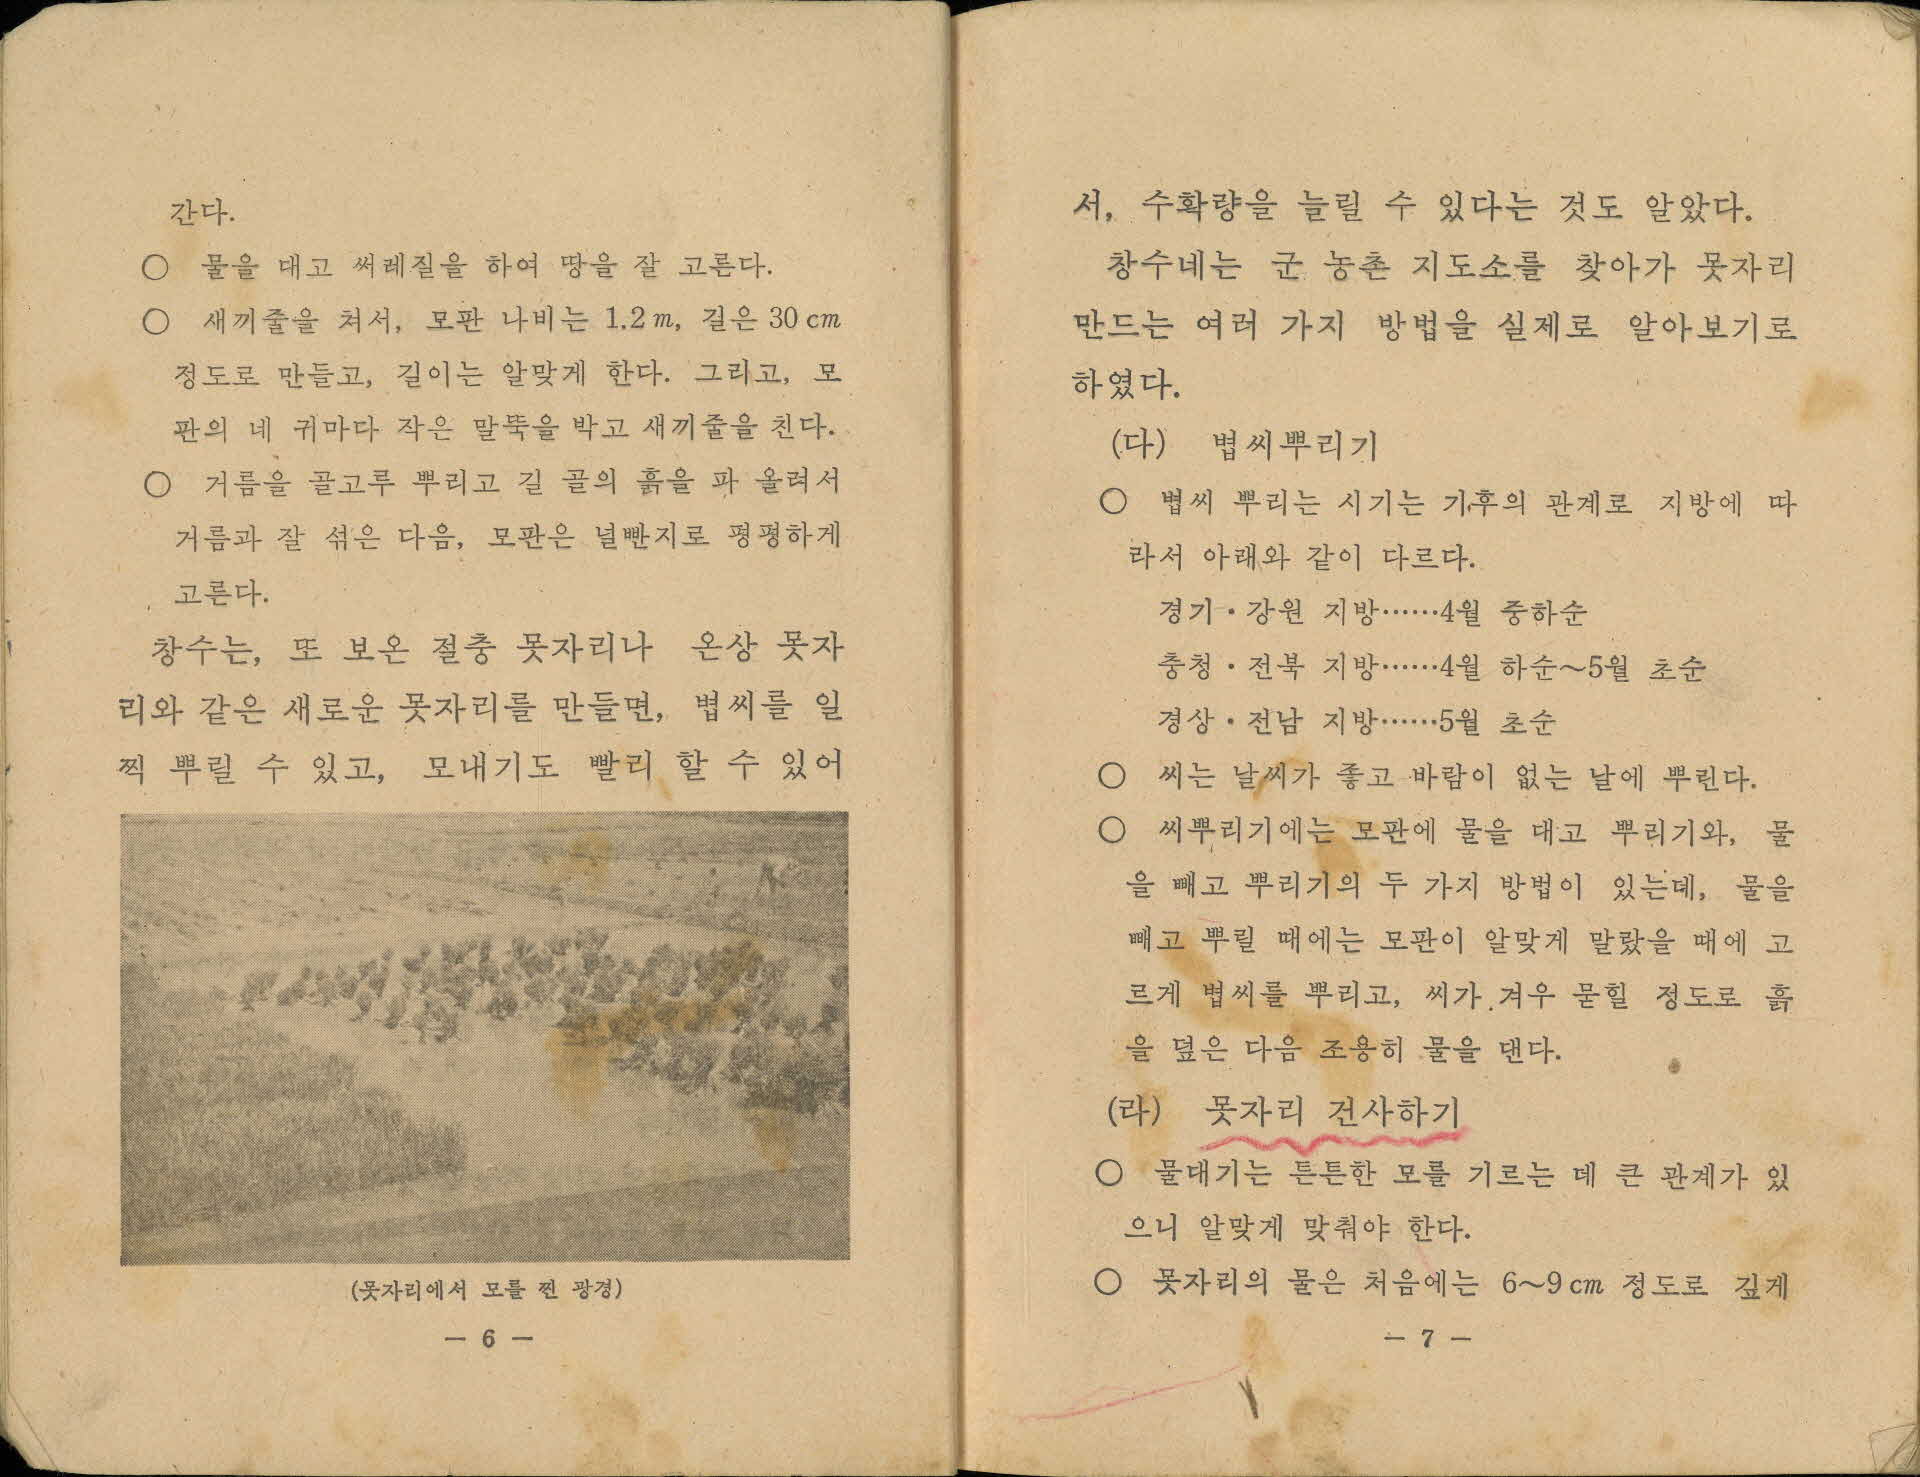 간다.
○ 물을 대고 써레질을 하여 땅을 잘 고른다.
○ 새끼줄을 쳐서, 모판 나비는 1.2m, 길은 30cm
정도로 만들고, 길이는 알맞게 한다. 그리고, 모
판의 네 귀마다 작은 말뚝을 박고 새끼줄을 친다.
○ 거름을 골고루 뿌리고 길 골의 흙을 파 올려서
거름과 잘 섞은 다음, 모판은 널빤지로 평평하게
고른다.
창수는, 또 보온 절충 못자리나 온상 못자
리와 같은 새로운 못자리를 만들면, 볍씨를 일
찍 뿌릴 수 있고, 모내기도 빨리 할 수 있어
(못자리에서 모를 찐 광경)
— 6 —
서, 수확량을 늘릴 수 있다는 것도 알았다.
창수네는 군 농촌 지도소를 찾아가 못자리
만드는 여러 가지 방법을 실제로 알아보기로
하였다.
(다) 볍씨뿌리기
○ 볍씨 뿌리는 시기는 기후의 관계로 지방에 따
라서 아래와 같이 다르다.
경기·강원 지방……4월 중하순
충청·전북 지방……4월 하순~5월 초순
경상·전남 지방……5월 초순
○ 씨는 날씨가 좋고 바람이 없는 날에 뿌린다.
○ 씨뿌리기에는 모판에 물을 대고 뿌리기와, 물
을 빼고 뿌리기의 두 가지 방법이 있는데, 물을
빼고 뿌릴 때에는 모판이 알맞게 말랐을 때에 고
르게 볍씨를 뿌리고, 씨가 겨우 묻힐 정도로 흙
을 덮은 다음 조용히 물을 댄다.
(라) 못자리 건사하기
○ 물대기는 튼튼한 모를 기르는 데 큰 관계가 있
으니 알맞게 맞춰야 한다.
○ 못자리의 물은 처음에는 6~9cm 정도로 깊게
— 7 —